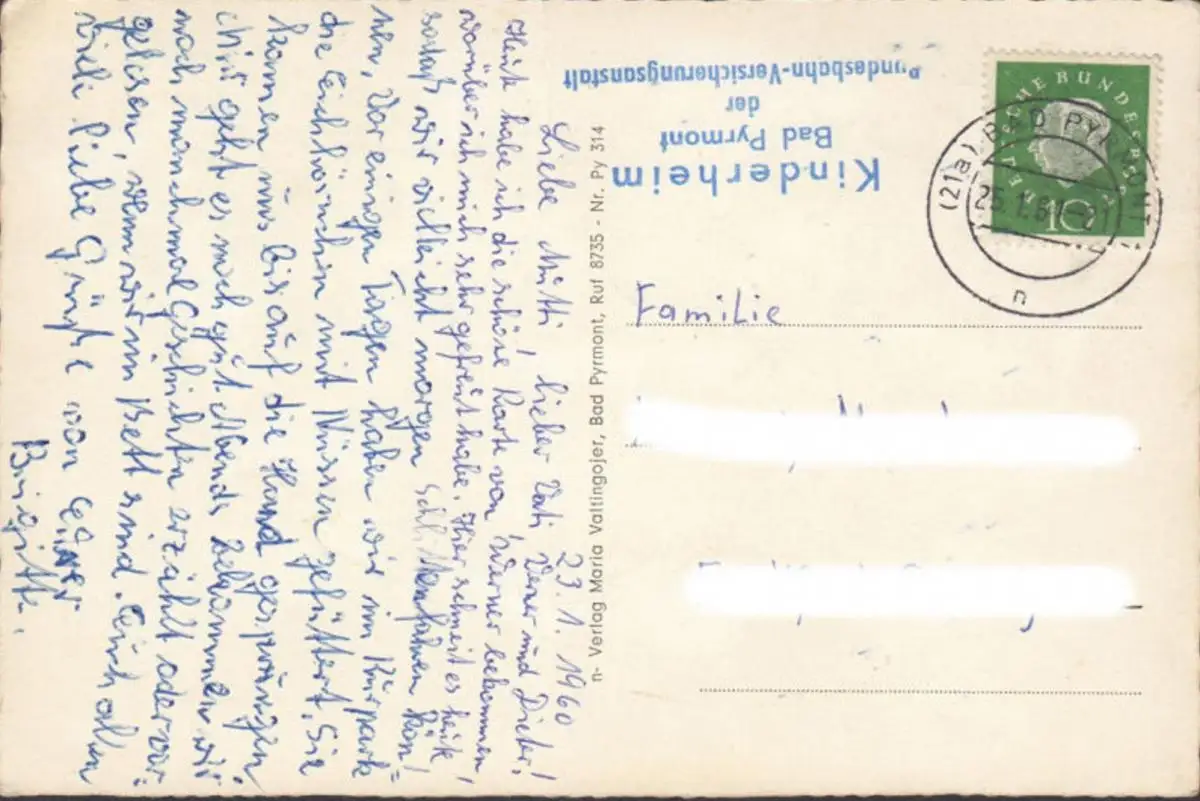 23. 1. 1960
Liebe Mutti, lieber Vati, Werner und Dieter!
Heute habe ich die schöne Karte von Werner bekommen,
worüber ich mich sehr gefreut habe. Hier schneit es heute,
sodaß wir vielleicht morgen schlittenfahren kön=
nen. Vor einigen Tagen haben wir im Kurpark
die Eichhörnchen mit Nüssen gefüttert. Sie
kamen uns bis auf die Hand gesprungen
Mir geht es noch gut. Abends bekommen wir
noch manchmal Geschichten erzählt oder vor=
gelesen, wenn wir im Bett sind. Euch allen
viele liebe Grüße von Eurer
Brigitte.
n- Verlag Maria Valtingojer, Bad Pyrmont, Ruf 8735 - Nr. Py 314
Kinderheim
Bad Pyrmont
der
Bundesbahn-Versicherungsanstalt
DEUTSCHE BUNDESPOST
10
(21a) BAD PYRMONT
25.1.61-21
n
Familie